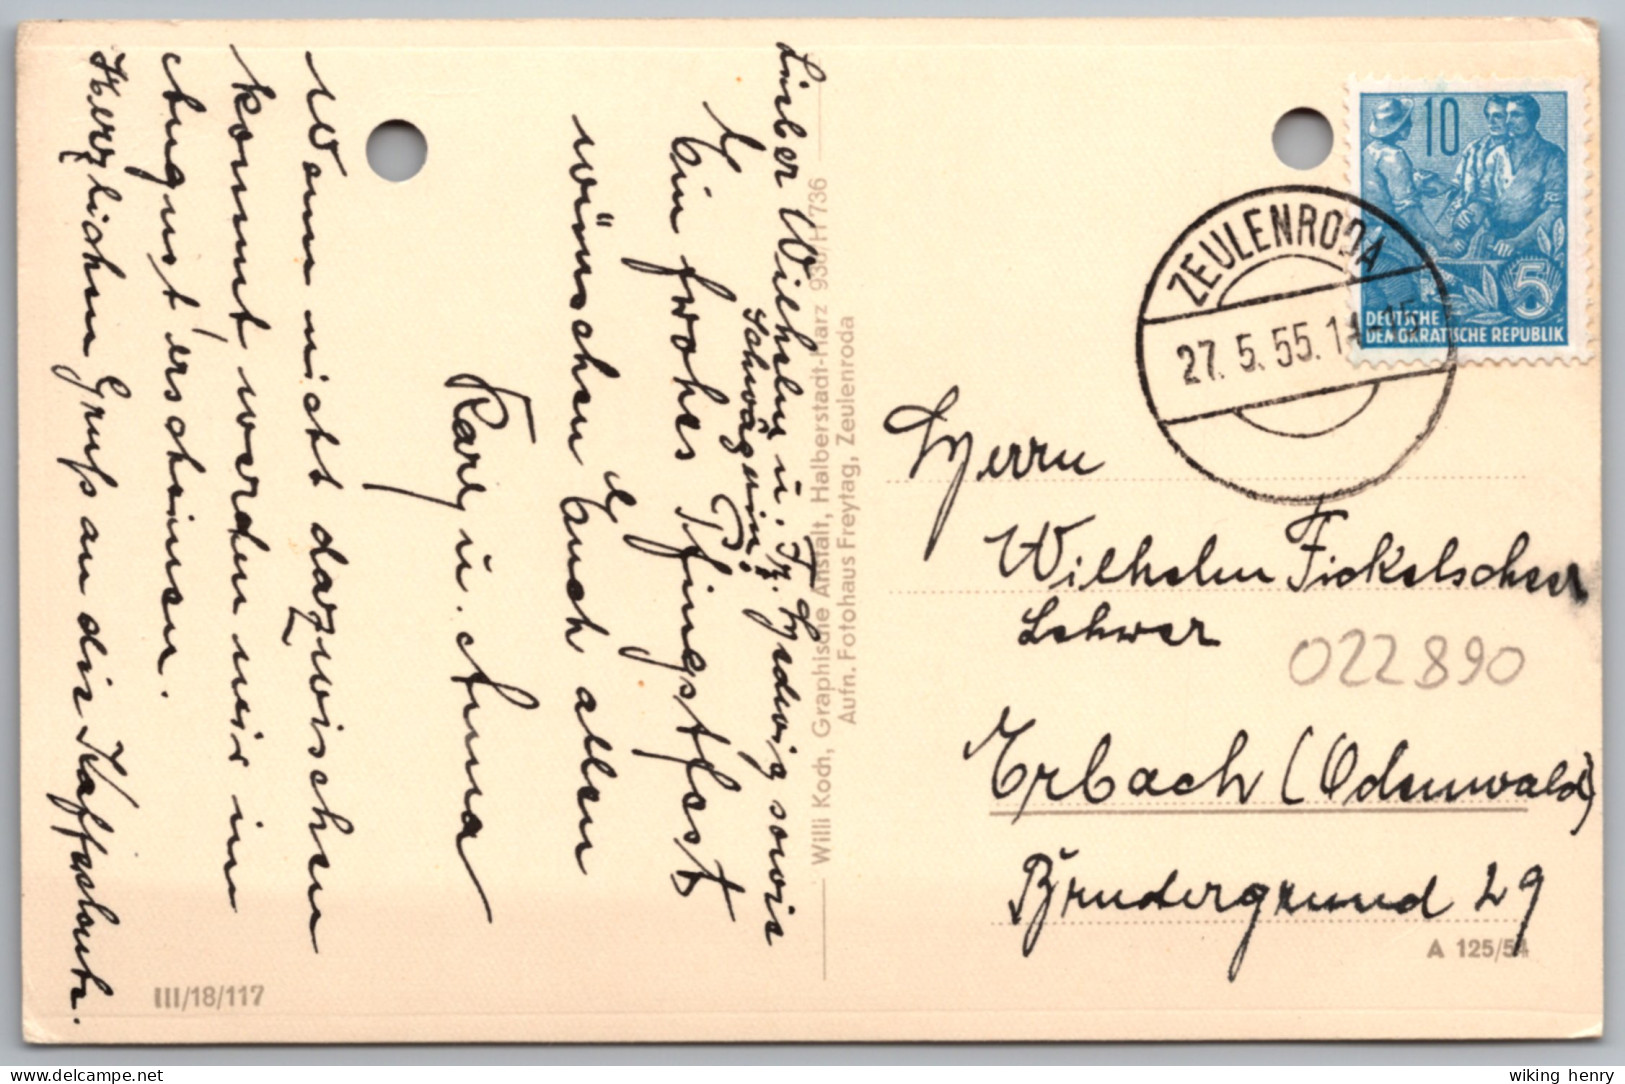 Lieber Wilhelm u. Fr. Hedwig sowie
Schwägerin!
Ein frohes Pfingstfest
wünschen Euch allen
Karl u. Anna
Wenn nicht dazwischen
kommt werden wir im
August erscheinen.
Herzlichen Gruß an die Kaffeeleute.
III/18/117
Willi Koch, Graphische Anstalt, Halberstadt-Harz 936/H 736
Aufn. Fotohaus Freytag, Zeulenroda
10
5
DEUTSCHE
DEMOKRATISCHE REPUBLIK
ZEULENRODA
27. 5. 55.
Herrn
Wilhelm Fickelscher
Lehrer
022890
Erbach (Odenwald)
Brudergrund 29
A 125/54
wiking henry